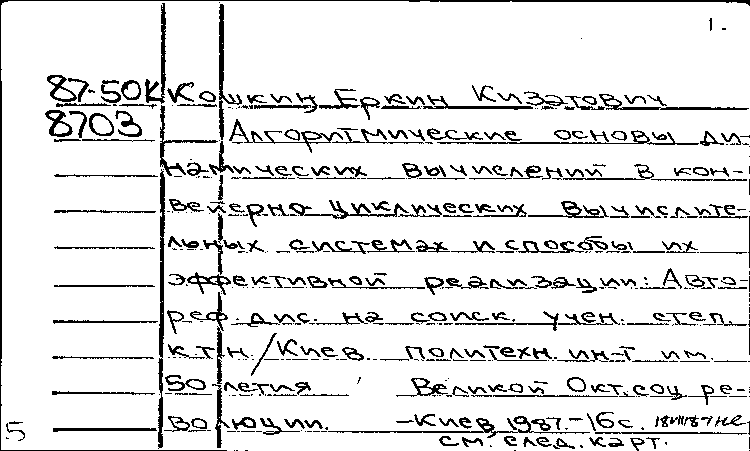 1.
87-50К Кошкин Еркин Кизатович
8703 Алгоритмические основы ди-
намических вычислений в кон-
вейерно-циклических вычислите-
льных системах и способы их
эффективной реализации: Авто-
реф. дис. на соиск. учен. степ.
к.т.н. / Киев. политехн. ин-т им.
50-летия Великой Окт. соц. ре-
волюции. – Киев, 1987. – 16 с.
5 см. след. карт.